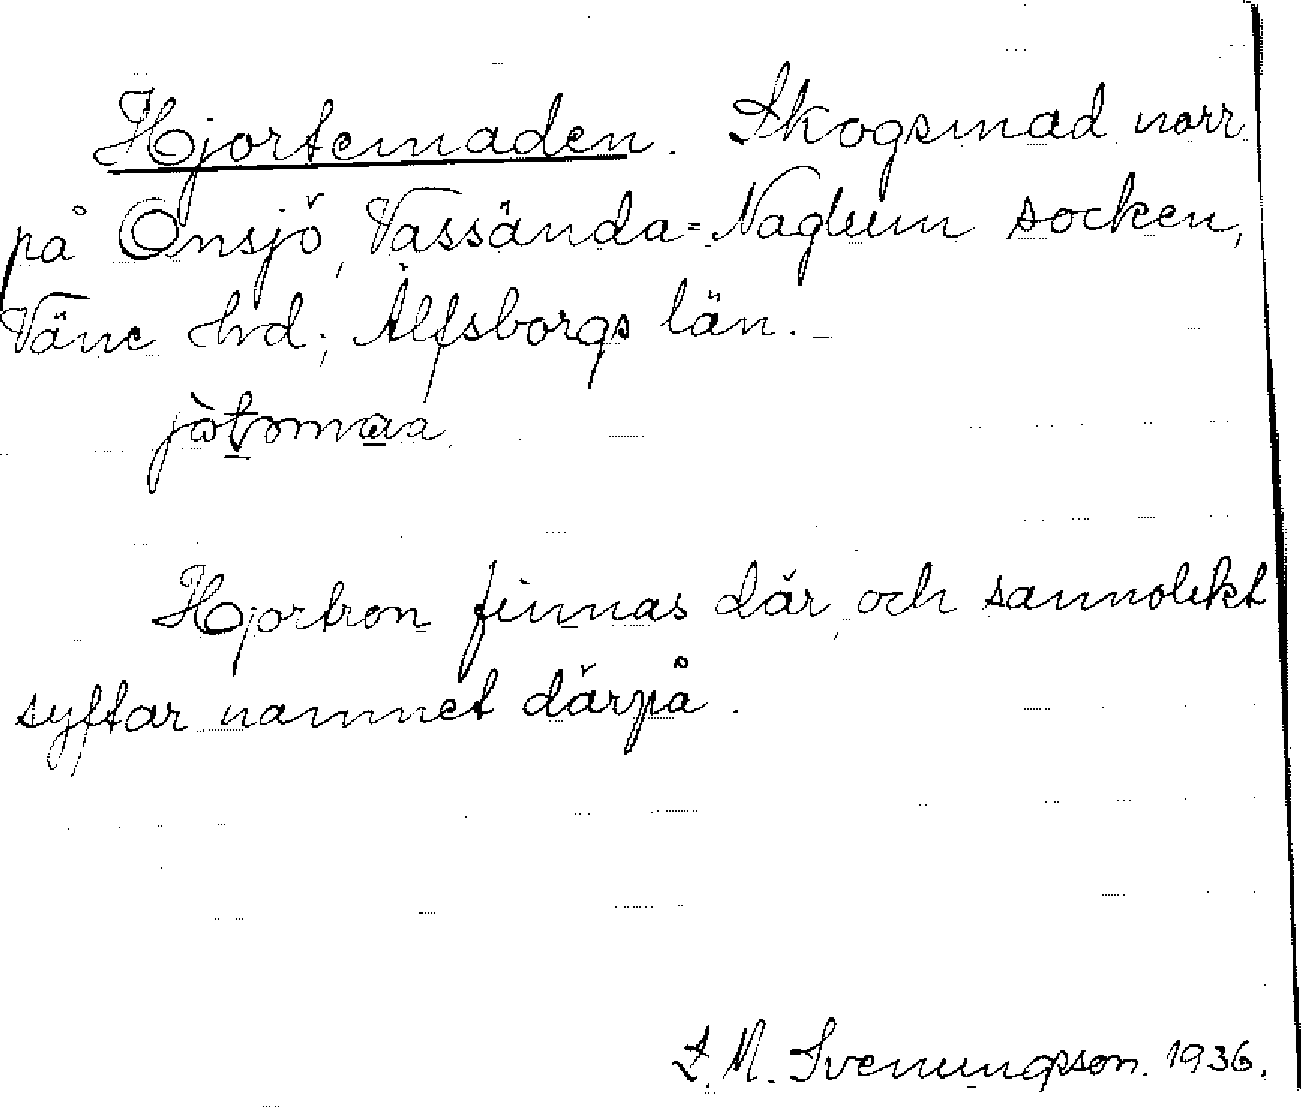 Hjortemaden. Skogsmad norr
på Onsjö, Vassända-Naglum socken,
Väne hd; Älfsborgs län.
Hjortron finnas där, och sannolikt
syftar namnet därpå.
S. M. Svenungsson. 1936.